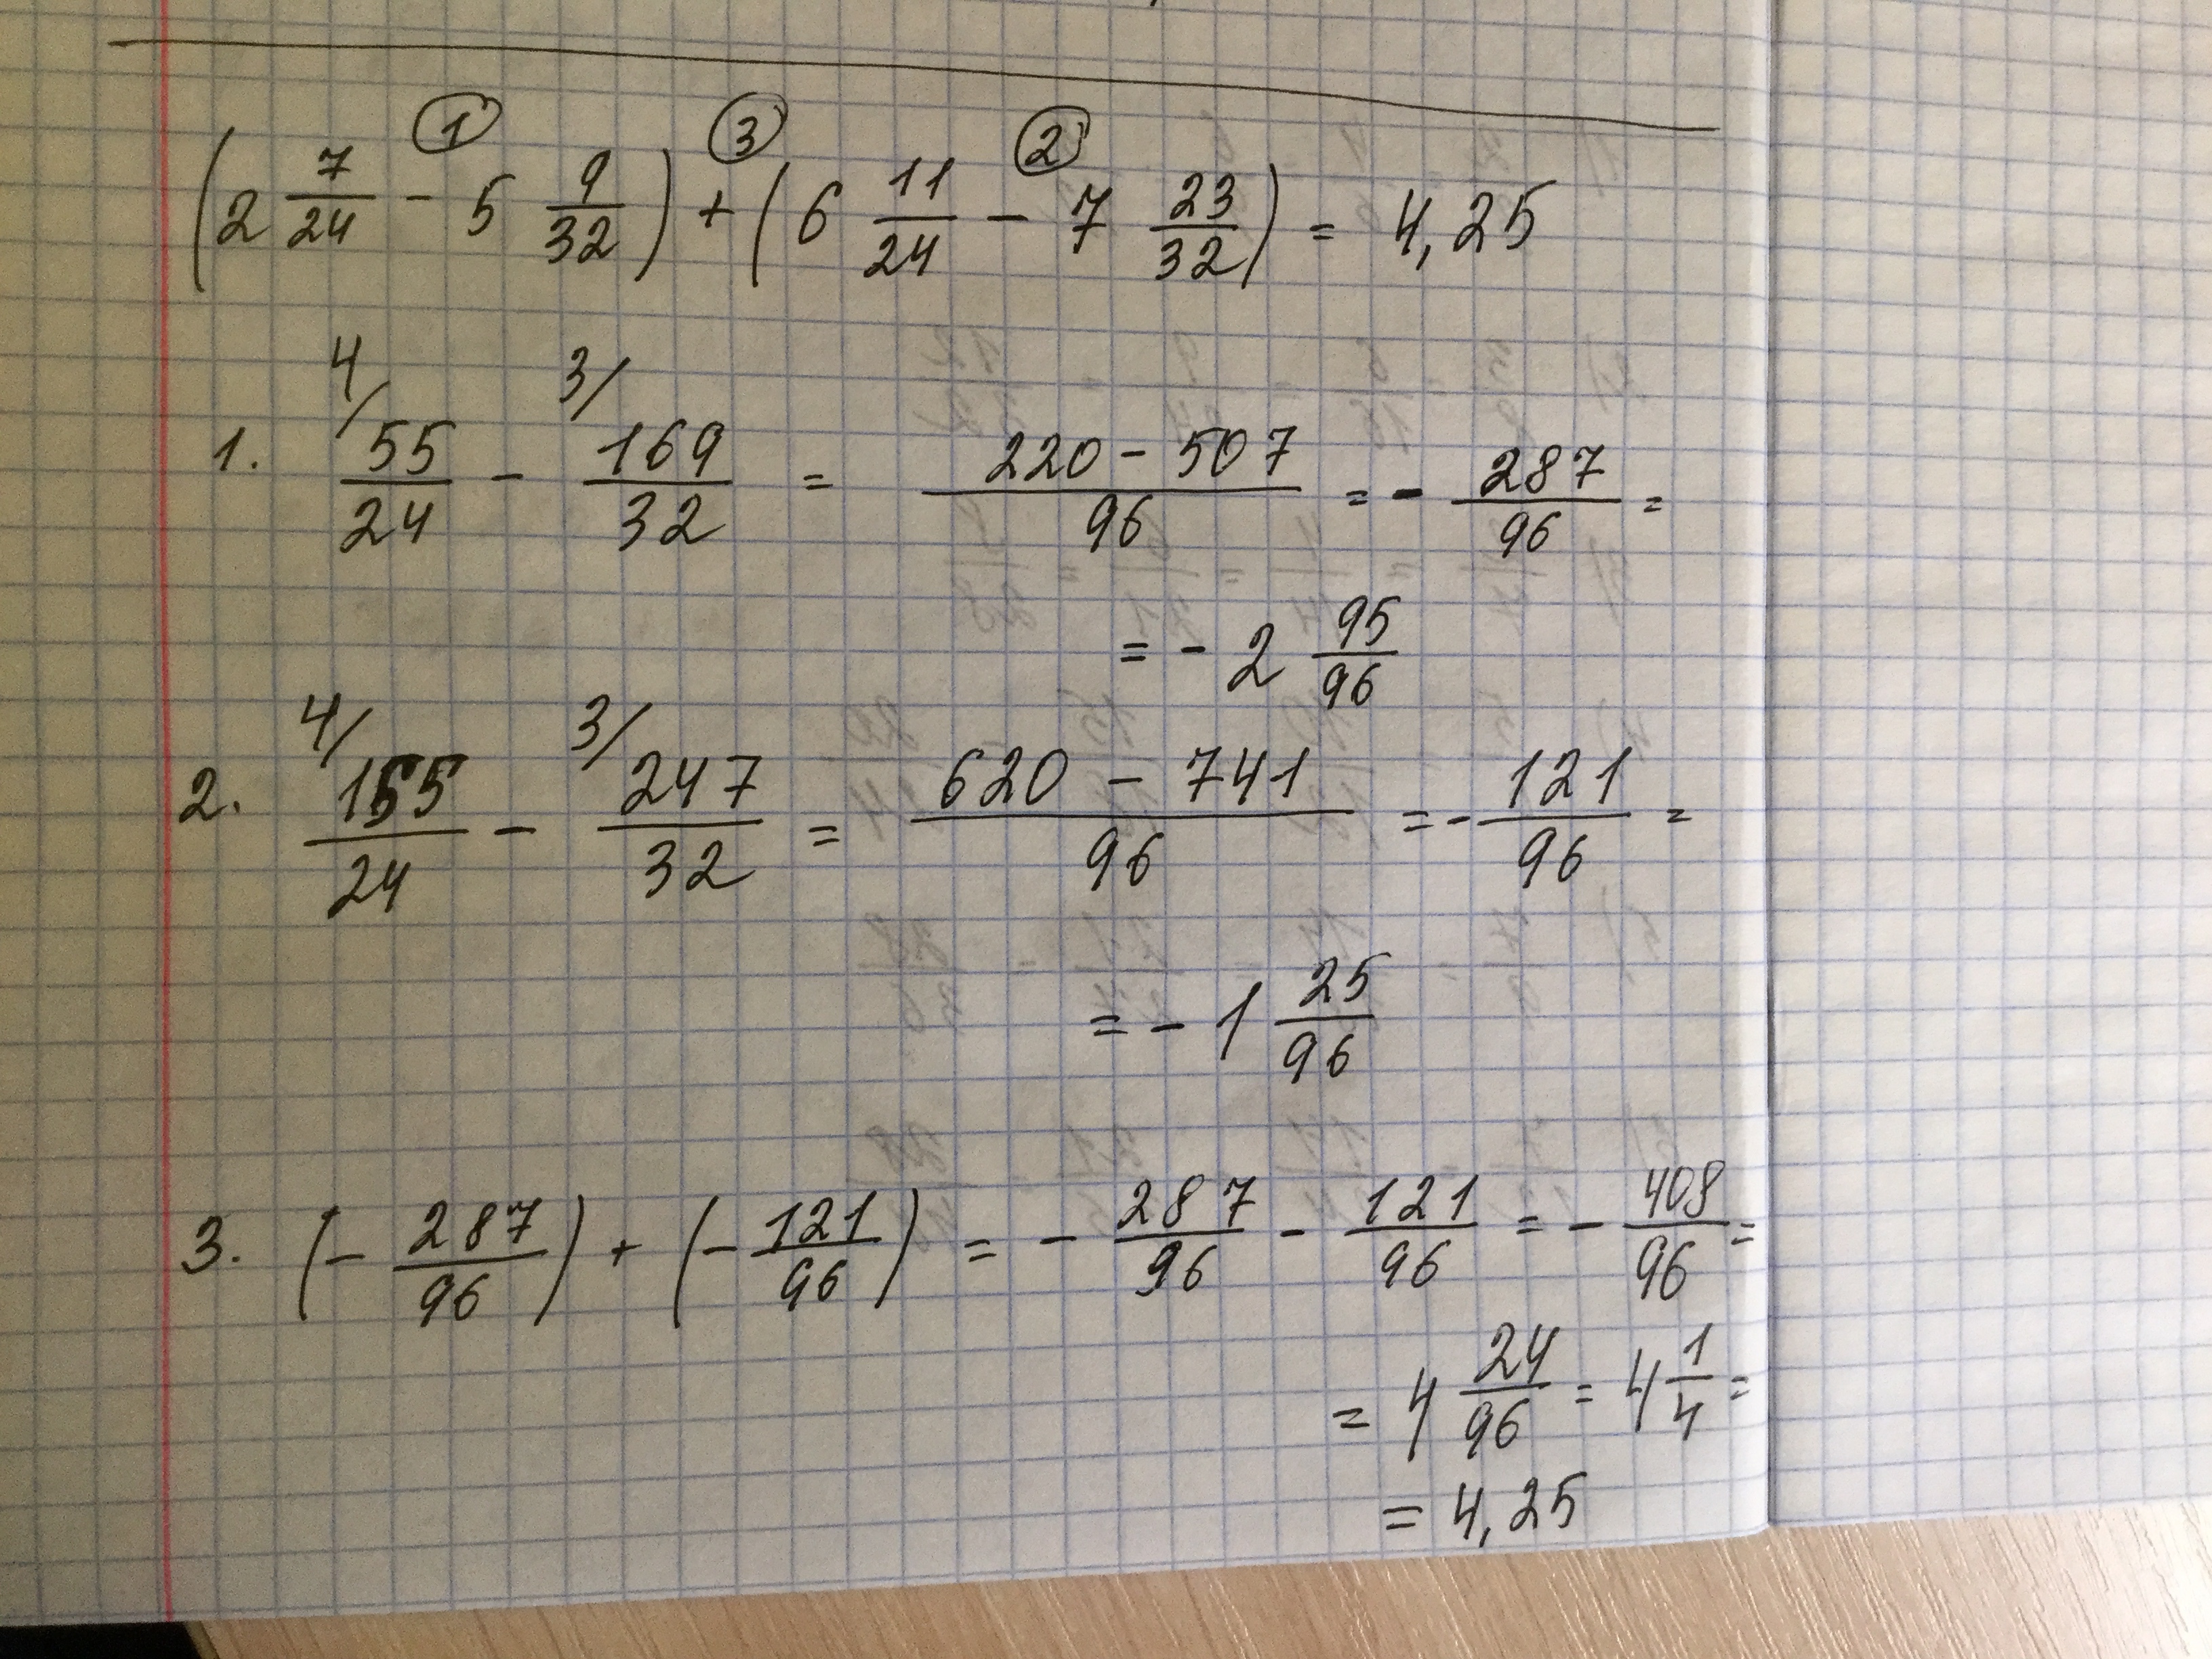 ① ③ ②
(2 7/24 - 5 9/32) + (6 11/24 - 7 23/32) = 4,25
4/ 3/
1. 55/24 - 169/32 = (220 - 507)/96 = - 287/96 =
= - 2 95/96
4/ 3/
2. 155/24 - 247/32 = (620 - 741)/96 = - 121/96 =
= - 1 25/96
3. (- 287/96) + (- 121/96) = - 287/96 - 121/96 = - 408/96 =
= 4 24/96 = 4 1/4 =
= 4,25